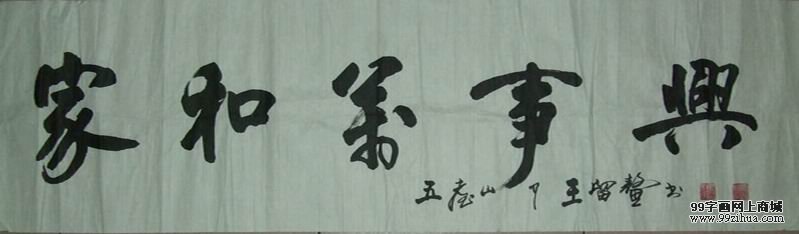 家和萬事興
五臺山 王留鰲书
99字画网上商城
www.99zihua.com